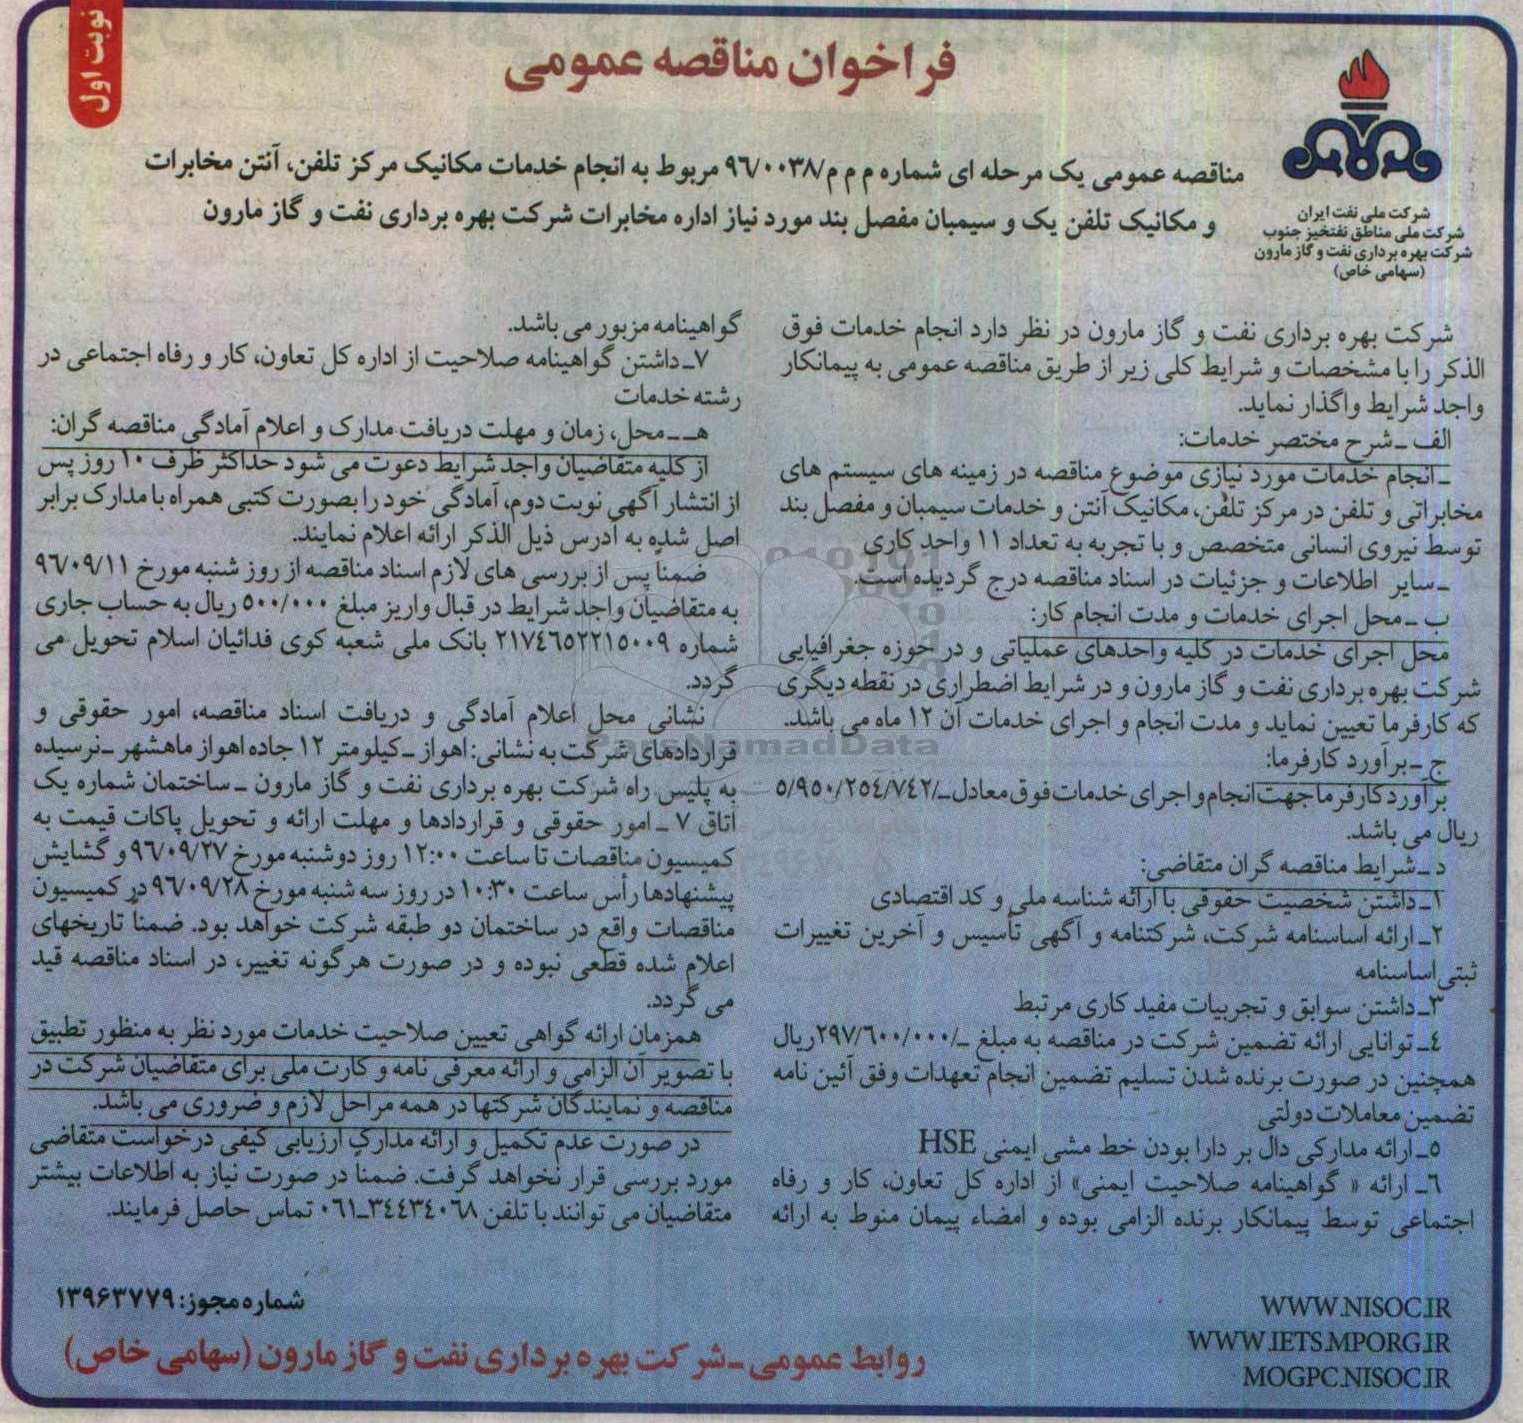 نوبت اول
فراخوان مناقصه عمومی
مناقصه عمومی یک مرحله ای شماره م م م/۹۶/۰۰۳۸ مربوط به انجام خدمات مکانیک مرکز تلفن، آنتن مخابرات
و مکانیک تلفن یک و سیمبان مفصل بند مورد نیاز اداره مخابرات شرکت بهره برداری نفت و گاز مارون
شرکت ملی نفت ایران
شرکت ملی مناطق نفتخیز جنوب
شرکت بهره برداری نفت و گاز مارون
(سهامی خاص)
شرکت بهره برداری نفت و گاز مارون در نظر دارد انجام خدمات فوق
الذکر را با مشخصات و شرایط کلی زیر از طریق مناقصه عمومی به پیمانکار
واجد شرایط واگذار نماید.
الف ـ شرح مختصر خدمات:
ـ انجام خدمات مورد نیازی موضوع مناقصه در زمینه های سیستم های
مخابراتی و تلفن در مرکز تلفن، مکانیک آنتن و خدمات سیمبان و مفصل بند
توسط نیروی انسانی متخصص و با تجربه به تعداد ۱۱ واحد کاری
ـ سایر اطلاعات و جزئیات در اسناد مناقصه درج گردیده است.
ب ـ محل اجرای خدمات و مدت انجام کار:
محل اجرای خدمات در کلیه واحدهای عملیاتی و در حوزه جغرافیایی
شرکت بهره برداری نفت و گاز مارون و در شرایط اضطراری در نقطه دیگری
که کارفرما تعیین نماید و مدت انجام و اجرای خدمات آن ۱۲ ماه می باشد.
ج ـ برآورد کارفرما:
برآورد کارفرما جهت انجام و اجرای خدمات فوق معادل ـ/۵/۹۵۰/۲۵۴/۷۴۲
ریال می باشد.
د ـ شرایط مناقصه گران متقاضی:
۱ـ داشتن شخصیت حقوقی با ارائه شناسه ملی و کد اقتصادی
۲ـ ارائه اساسنامه شرکت، شرکتنامه و آگهی تأسیس و آخرین تغییرات
ثبتی اساسنامه
۳ـ داشتن سوابق و تجربیات مفید کاری مرتبط
۴ـ توانایی ارائه تضمین شرکت در مناقصه به مبلغ ـ/۲۹۷/۶۰۰/۰۰۰ ریال
همچنین در صورت برنده شدن تسلیم تضمین انجام تعهدات وفق آئین نامه
تضمین معاملات دولتی
۵ـ ارائه مدارکی دال بر دارا بودن خط مشی ایمنی HSE
۶ـ ارائه « گواهینامه صلاحیت ایمنی» از اداره کل تعاون، کار و رفاه
اجتماعی توسط پیمانکار برنده الزامی بوده و امضاء پیمان منوط به ارائه
گواهینامه مزبور می باشد.
۷ـ داشتن گواهینامه صلاحیت از اداره کل تعاون، کار و رفاه اجتماعی در
رشته خدمات
هـ ـ محل، زمان و مهلت دریافت مدارک و اعلام آمادگی مناقصه گران:
از کلیه متقاضیان واجد شرایط دعوت می شود حداکثر ظرف ۱۰ روز پس
از انتشار آگهی نوبت دوم، آمادگی خود را بصورت کتبی همراه با مدارک برابر
اصل شده به آدرس ذیل الذکر ارائه اعلام نمایند.
ضمناً پس از بررسی های لازم اسناد مناقصه از روز شنبه مورخ ۹۶/۰۹/۱۱
به متقاضیان واجد شرایط در قبال واریز مبلغ ۵۰۰/۰۰۰ ریال به حساب جاری
شماره ۲۱۷۴۶۵۲۲۱۵۰۰۹ بانک ملی شعبه کوی فدائیان اسلام تحویل می
گردد.
نشانی محل اعلام آمادگی و دریافت اسناد مناقصه، امور حقوقی و
قراردادهای شرکت به نشانی: اهواز ـ کیلومتر ۱۲ جاده اهواز ماهشهر ـ نرسیده
به پلیس راه شرکت بهره برداری نفت و گاز مارون ـ ساختمان شماره یک
اتاق ۷ ـ امور حقوقی و قراردادها و مهلت ارائه و تحویل پاکات قیمت به
کمیسیون مناقصات تا ساعت ۱۲:۰۰ روز دوشنبه مورخ ۹۶/۰۹/۲۷ و گشایش
پیشنهادها رأس ساعت ۱۰:۳۰ در روز سه شنبه مورخ ۹۶/۰۹/۲۸ در کمیسیون
مناقصات واقع در ساختمان دو طبقه شرکت خواهد بود. ضمناً تاریخهای
اعلام شده قطعی نبوده و در صورت هرگونه تغییر، در اسناد مناقصه قید
می گردد.
همزمان ارائه گواهی تعیین صلاحیت خدمات مورد نظر به منظور تطبیق
با تصویر آن الزامی و ارائه معرفی نامه و کارت ملی برای متقاضیان شرکت در
مناقصه و نمایندگان شرکتها در همه مراحل لازم و ضروری می باشد.
در صورت عدم تکمیل و ارائه مدارک ارزیابی کیفی درخواست متقاضی
مورد بررسی قرار نخواهد گرفت. ضمناً در صورت نیاز به اطلاعات بیشتر
متقاضیان می توانند با تلفن ۳۴۴۳۴۰۶۸ـ۰۶۱ تماس حاصل فرمایند.
شماره مجوز: ۱۳۹۶۳۷۷۹
WWW.NISOC.IR
WWW.IETS.MPORG.IR
MOGPC.NISOC.IR
روابط عمومی ـ شرکت بهره برداری نفت و گاز مارون (سهامی خاص)
ParsNamadData